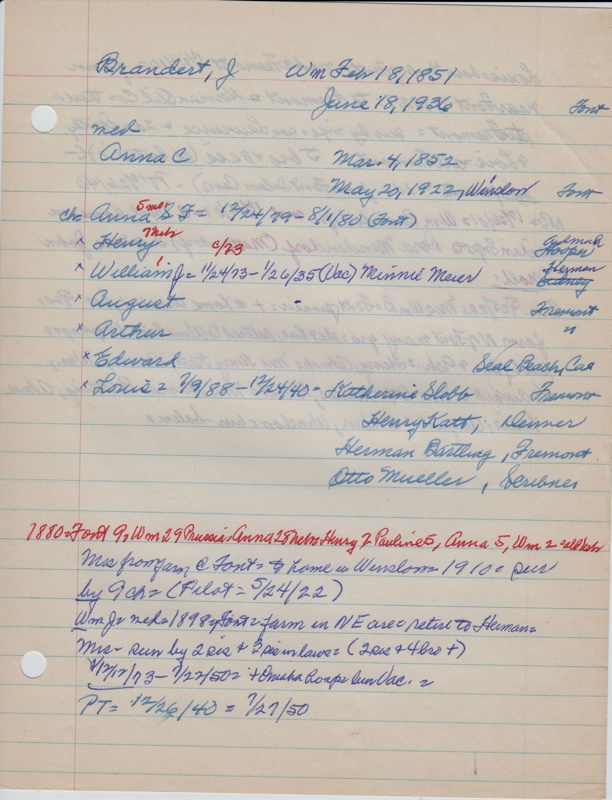 Brandert, J Wm Feb 18, 1851
June 18, 1936 Font
med
Anna C Mar. 4, 1852
May 20, 1922, Winslow Font
5 mo
ch Anna & F = 12/24/79 - 8/1/80 (Font)
x Henry Nebr c/73 Hooper
x William J = 11/24/73 - 1/26/35 (Vac) Minnie Meier Herman Sidney
x August - Fremont
x Arthur "
x Edward Seal Beach, Cal
x Louis = 7/9/88 - 12/24/40 = Katherine Slobb Fremont
Henry Katt, Denver
Herman Bartling, Fremont
Otto Mueller, Scribner
1880 = Font 9, Wm 29 Prussia, Anna 28 Nebr Henry 7 Pauline 5, Anna 5, Wm 2 = all Nebr
Mrs from farm C Font = to home in Winslow = 1910 = sur
by 9 ch = (Pilot = 5/24/22)
Wm J = med = 1898 = Font = farm in NE area = retired to Herman =
Mrs = sur by 2 sis + 3 sis in laws = (2 sis + 4 bro +)
12/73 - 7/22/50 = + Omaha Hospt bur Vac. =
PT = 12/26/40 = 7/27/50